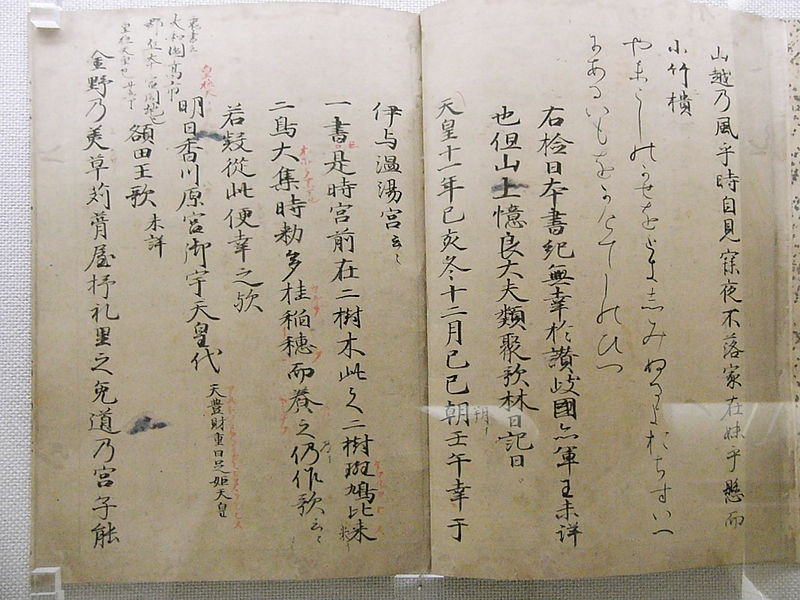 山越乃風乎時自見寐夜不落家在妹乎懸而
小竹樻
やまこしのかせをときしみぬるよおちすいへ
にあるいもをかけてしのひつ
右捡日本書紀無幸於讃岐國亦軍王未詳
也但山上憶良大夫類聚歌林曰記曰
天皇十一年己亥冬十二月己巳朝壬午幸于
朔
伊与温湯宮云々
一書是時宮前在二樹木此之二樹斑鳩比来
米
二鳥大集時勅多桂稲穂而養之仍作歌云々
若疑從此便幸之歟
明日香川原宮御宇天皇代 天豊財重日足姫天皇
皇極
額田王歌 未詳
裏書云
大和國高市
金野乃美草苅葺屋杼礼里之兎道乃宮子能